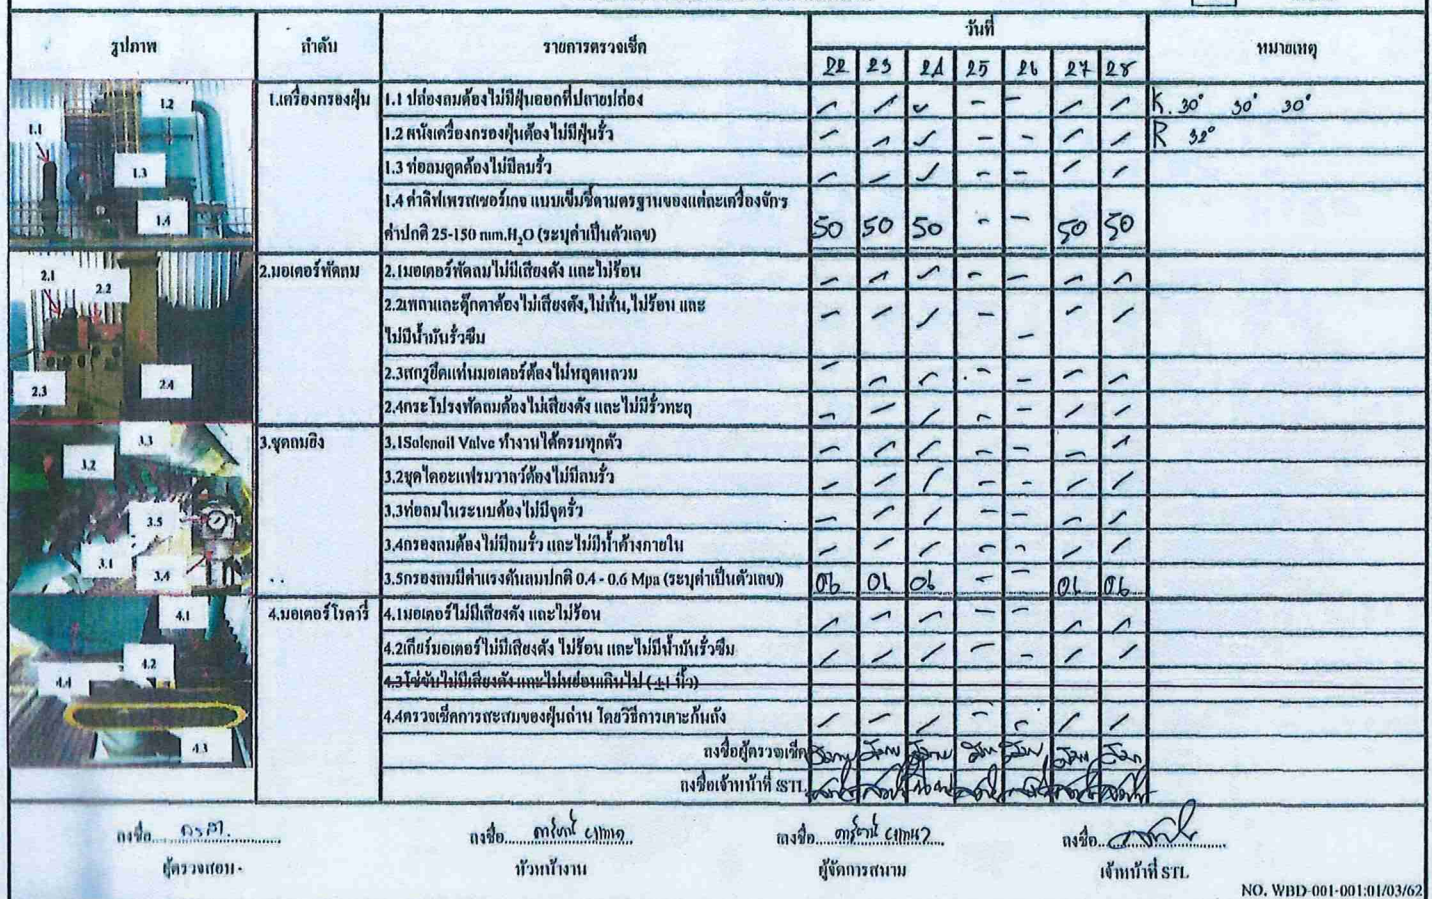 รูปภาพ ลำดับ รายการตรวจเช็ค วันที่ หมายเหตุ
22 23 24 25 26 27 28
1.เครื่องกรองฝุ่น 1.1 ปล่องลมต้องไม่มีฝุ่นออกที่ปลายปล่อง K. 30° 30° 30°
1.2 ผนังเครื่องกรองฝุ่นต้องไม่มีฝุ่นรั่ว R 32°
1.3 ท่อลมดูดต้องไม่มีลมรั่ว
1.4 ค่าดิฟเพรสเชอร์เกจ แบบเข็มชี้ตามตรฐานของแต่ละเครื่องจักร
ค่าปกติ 25-150 mm.H₂O (ระบุค่าเป็นตัวเลข) 50 50 50 - - 50 50
1.1 1.2 1.3 1.4
2.มอเตอร์พัดลม 2.1มอเตอร์พัดลมไม่มีเสียงดัง และไม่ร้อน
2.2เพลาและตุ๊กตาต้องไม่เสียงดัง,ไม่สั่น,ไม่ร้อน และ
ไม่มีน้ำมันรั่วซึม
2.3สกรูยึดแท่นมอเตอร์ต้องไม่หลุดหลวม
2.4กระโปรงพัดลมต้องไม่เสียงดัง และไม่มีรั่วทะลุ
2.1 2.2 2.3 2.4
3.ชุดลมยิง 3.1Solenoil Valve ทำงานได้ครบทุกตัว
3.2ชุดไดอะแฟรมวาลว์ต้องไม่มีลมรั่ว
3.3ท่อลมในระบบต้องไม่มีจุดรั่ว
3.4กรองลมต้องไม่มีลมรั่ว และไม่มีน้ำค้างภายใน
3.5กรองลมมีค่าแรงดันลมปกติ 0.4 - 0.6 Mpa (ระบุค่าเป็นตัวเลข) 06 06 06 - - 06 06
3.3 3.2 3.5 3.1 3.4
4.มอเตอร์โรตารี่ 4.1มอเตอร์ไม่มีเสียงดัง และไม่ร้อน
4.2เกียร์มอเตอร์ไม่มีเสียงดัง ไม่ร้อน และไม่มีน้ำมันรั่วซึม
4.3โซ่ขับไม่มีเสียงดังและไม่หย่อนเกินไป (±1 นิ้ว)
4.4ตรวจเช็คการสะสมของฝุ่นถ่าน โดยวิธีการเคาะก้นถัง
4.1 4.2 4.4 4.3
ลงชื่อผู้ตรวจเช็ค
ลงชื่อเจ้าหน้าที่ STL
ลงชื่อ ลงชื่อ ลงชื่อ ลงชื่อ
ผู้ตรวจสอบ หัวหน้างาน ผู้จัดการสนาม เจ้าหน้าที่ STL
NO. WBD-001-001:01/03/62